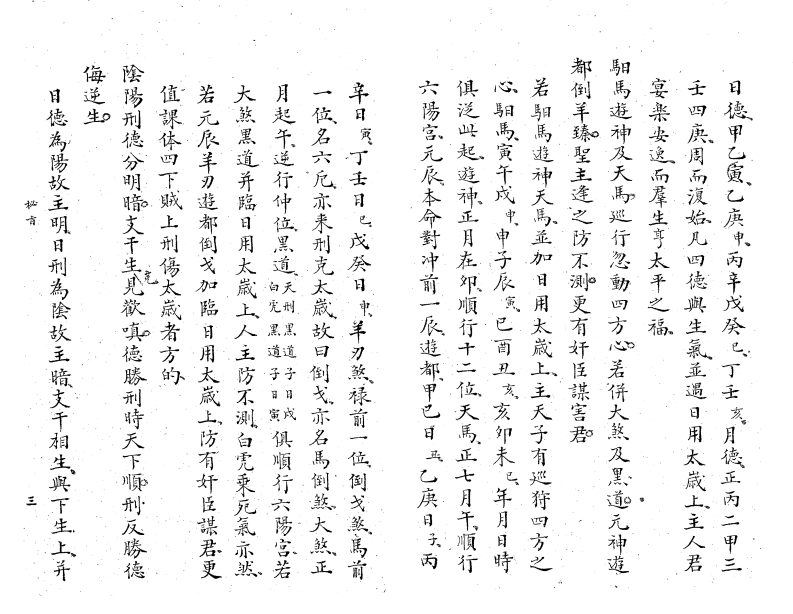 日德、甲乙寅、乙庚申、丙辛戊癸巳、丁壬亥、月德、正丙二甲三
壬四庚、周而復始、凡四德與生氣、並遇日用太歲上、主人君
宴樂安逸、而羣生享太平之福、
馹馬遊神及天馬。巡行忽動四方心。若併大煞及黑道。元神遊
都倒羊臻。聖主逢之防不測。更有奸臣謀害君。
若馹馬遊神天馬、並加日用太歲上、主天子有巡狩四方之
心、馹馬、寅午戌申、申子辰寅、巳酉丑亥、亥卯未巳、年月日時
俱泛此起、遊神、正月在卯、順行十二位、天馬、正七月午、順行
六陽宮、元辰、本命對冲前一辰、遊都、甲巳日丑、乙庚日子、丙
辛日寅、丁壬日巳、戊癸日申、羊刃煞、禄前一位、倒戈煞、馬前
一位、名六厄、亦来刑克太歲、故曰倒戈、亦名馬倒煞、大煞、正
月起午、逆行仲位、黑道、天刑黑道子日戌白虎黑道子日寅俱順行六陽宮、若
大煞黑道并臨日用太歲上、人主防不測、白虎乘死氣亦然、
若元辰羊刃遊都倒戈加臨日用太歲上、防有奸臣謀君、更
值課体四下賊上刑傷太歲者方的、
陰陽刑德分明暗。支干生克見歡嗔。德勝刑時天下順。刑反勝德
侮逆生。
日德為陽故主明、日刑為陰故主暗、支干相生、與下生上、并
秘言
三